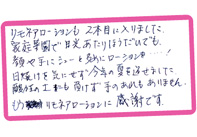 リモネアローションも2本目に入りました。
家庭菜園で日光あたりほうだいでも、
顔や手にシューと気にローション……!
日焼けを気にせず今年の夏を過せました。
顔のエ も負けず手のあれもありません。
もう リモネアローションに感謝です。